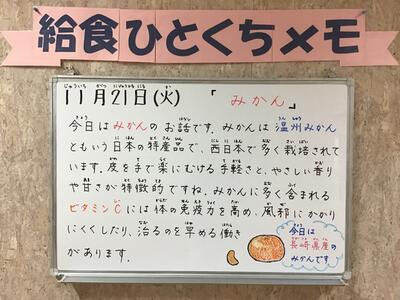 給食ひとくちメモ
11月21日(火) 「みかん」
今日はみかんのお話です。みかんは温州みかん
ともいう日本の特産品で、西日本で多く栽培されて
います。皮を手で楽にむける手軽さと、やさしい香り
や甘さが特徴的ですね。みかんに多く含まれる
ビタミンCには体の免疫力を高め、風邪にかかり
にくくしたり、治るのを早める働き
があります。
今日は
長崎県産の
みかんです